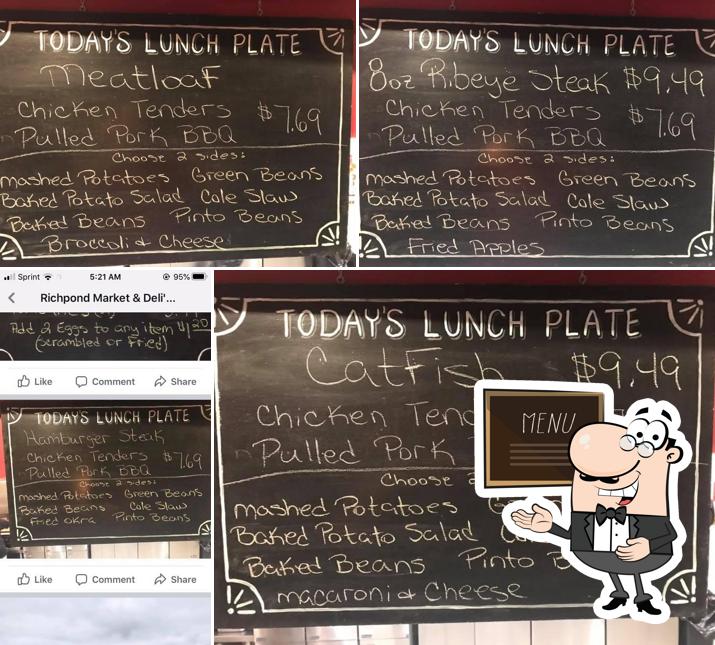 TODAY'S LUNCH PLATE
Meatloaf
Chicken Tenders $7.69
Pulled Pork BBQ
Choose 2 sides:
mashed Potatoes Green Beans
Baked Potato Salad Cole Slaw
Baked Beans Pinto Beans
Broccoli & Cheese
TODAY'S LUNCH PLATE
8oz Ribeye Steak $9.49
Chicken Tenders $7.69
Pulled Pork BBQ
Choose 2 sides:
mashed Potatoes Green Beans
Baked Potato Salad Cole Slaw
Baked Beans Pinto Beans
Fried Apples
Sprint 5:21 AM 95%
Richpond Market & Deli'...
Add 2 Eggs to any item
(scrambled or Fried)
Like Comment Share
TODAY'S LUNCH PLATE
Hamburger Steak
Chicken Tenders $7.69
Pulled Pork BBQ
Choose 2 sides:
mashed Potatoes Green Beans
Baked Beans Cole Slaw
Fried Okra Pinto Beans
Like Comment Share
TODAY'S LUNCH PLATE
CatFish $9.49
Chicken Tend
Pulled Pork
Choose
mashed Potatoes
Baked Potato Salad
Baked Beans Pinto B
macaroni & Cheese
MENU